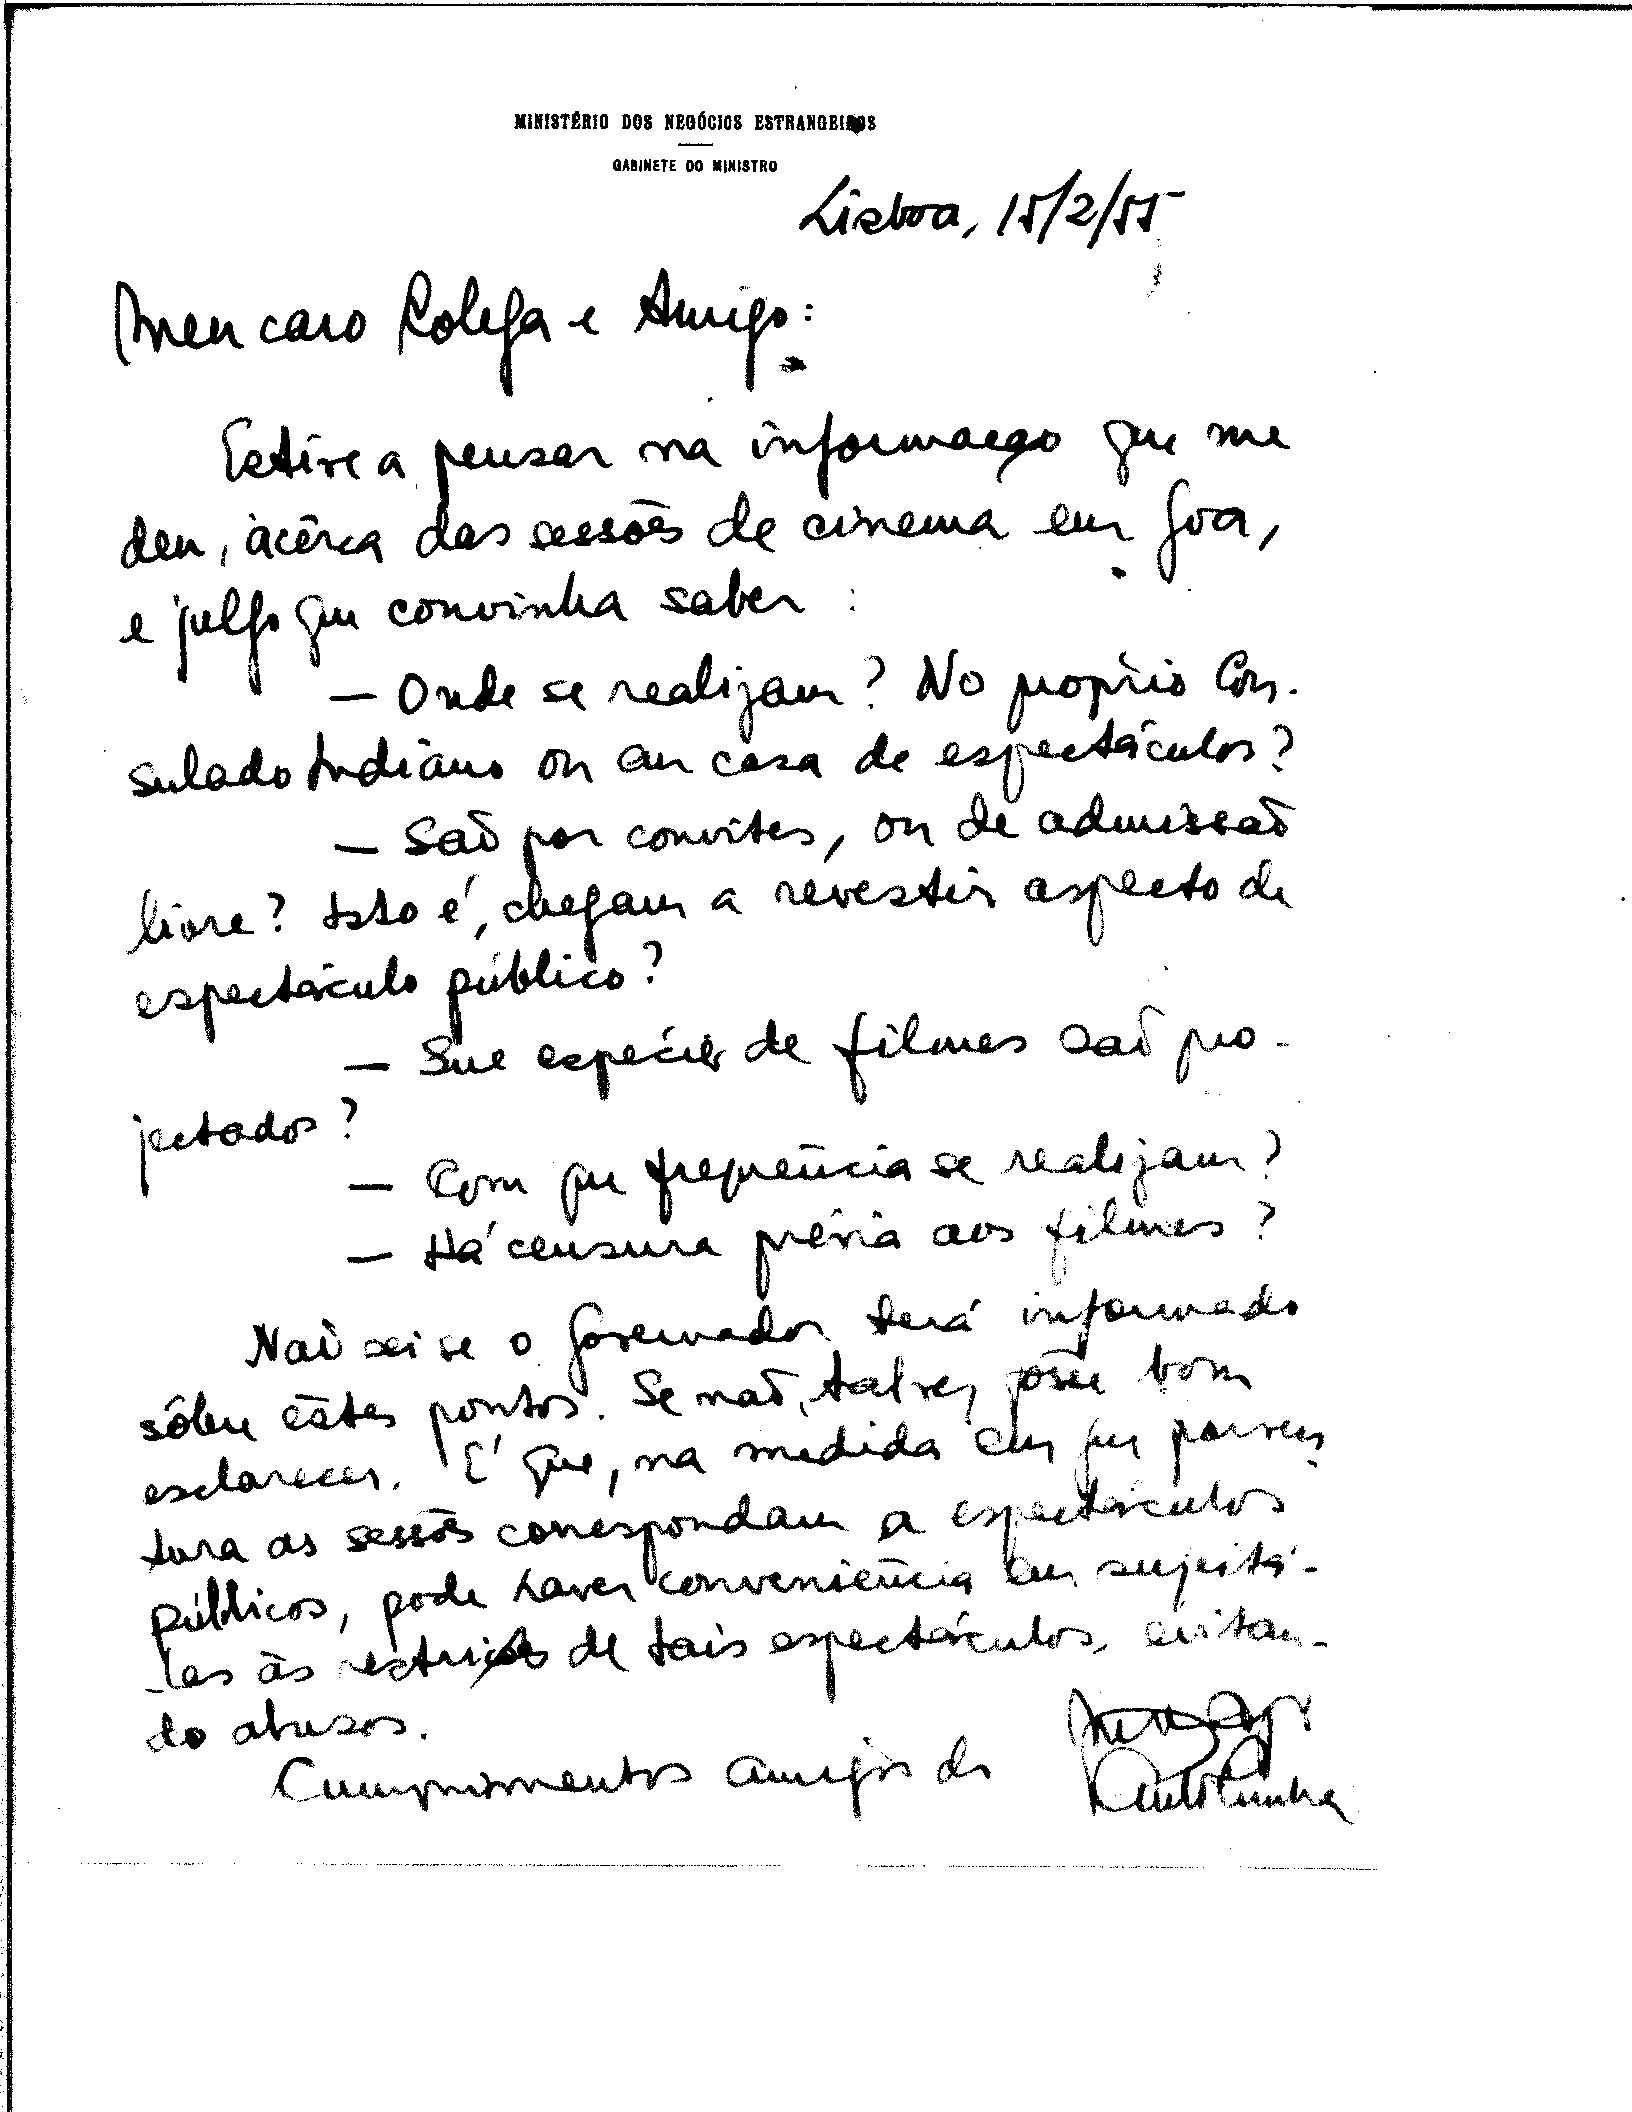 MINISTÉRIO DOS NEGÓCIOS ESTRANGEIROS
GABINETE DO MINISTRO
Lisboa, 15/2/55
Meu caro Colega e Amigo:
Estive a pensar na informação que me
deu, àcêrca das sessões de cinema em Goa,
e julgo que convinha saber:
— Onde se realizam? No próprio Con-
sulado Indiano ou em casa de espectáculos?
— São por convites, ou de admissão
livre? Isto é, chegam a revestir aspecto de
espectáculo público?
— Que espécies de filmes são pro-
jectados?
— Com que freqüência se realizam?
— Há censura prévia aos filmes?
Não sei se o Governador terá informado
sôbre êstes pontos. Se não, talvez fôsse bom
esclarecer. É que, na medida em que porven-
tura as sessões correspondam a espectáculos
públicos, pode haver conveniência em sujeitá-
-las às de tais espectáculos, evitan-
do abusos.
Cumprimentos amigos do
Cunha